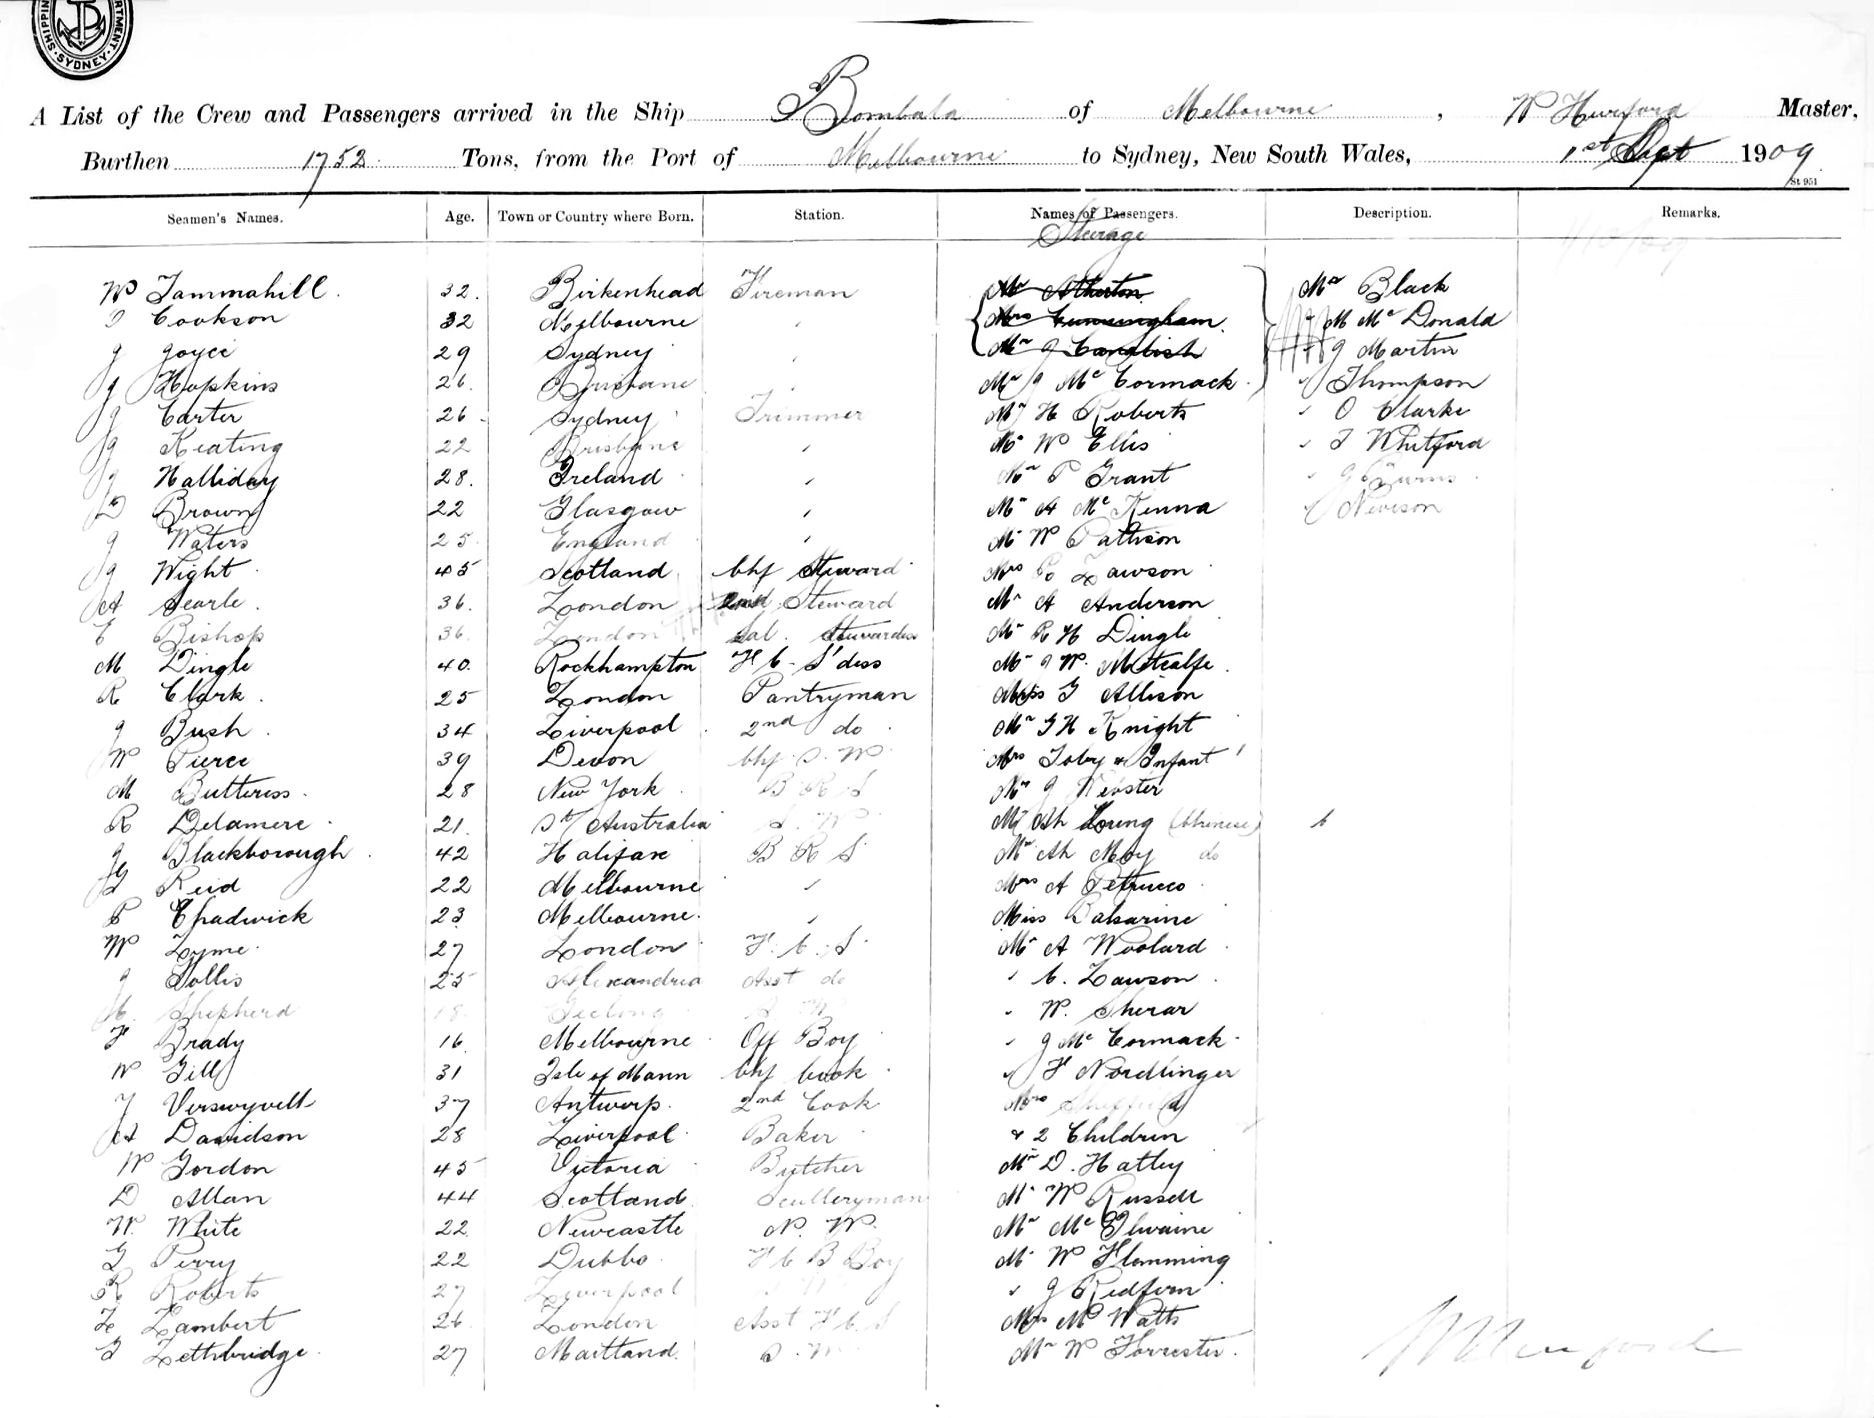 SHIPPING DEPARTMENT SYDNEY
A List of the Crew and Passengers arrived in the Ship Bombala of Melbourne, W Hurford Master,
Burthen 1752 Tons, from the Port of Melbourne to Sydney, New South Wales, 1st Sept 1909
St 951
Seamen's Names. Age. Town or Country where Born. Station. Names of Passengers. Description. Remarks.
Steerage
W Tammahill 32 Birkenhead Fireman Mr Atherton Mr Black
Cookson 32 Melbourne " Mrs Cunningham " M McDonald
J Joyce 29 Sydney " Mr J Cavalish " J Martin
J Hopkins 26 Brisbane " Mr J McCormack " Thompson
J Carter 26 Sydney Trimmer Mr H Roberts " O Clarke
J Keating 22 Brisbane " Mr W Ellis " T Whitford
J Halliday 28 Ireland " Mr P Grant " J Burns
D Brown 22 Glasgow " Mr A McKenna " Nevison
J Waters 25 England " Mr W Pattison
J Wight 45 Scotland Chf Steward Mrs Lawson
A Searle 36 London 2nd Steward Mr A Anderson
E Bishop 36 London Sal. Stewardess Mr R H Dingle
M Dingle 40 Rockhampton F C S'dess Mr J W Metcalfe
R Clark 25 London Pantryman Miss G Allison
J Bush 34 Liverpool 2nd do Mr G H Knight
W Pierce 39 Devon Chf S. W Mrs Toby & Infant 1
M Butteriss 28 New York B R S Mr J Webster
R Delamere 21 Sth Australia S. W Mr Ah (Chinese)
J Blackborough 42 Halifax B R S Mr Ah Moy do
G Reid 22 Melbourne " Mrs A Petrucco
P Chadwick 23 Melbourne " Miss Balsarine
W Lyme 27 London F. C. S Mr A Woolard
J Tollis 25 Alexandria Asst do " C. Lawson
H. Shepherd 18 Geelong S W " W. Sherar
F Brady 16 Melbourne Off Boy " J McCormack
W Gill 31 Isle of Mann Chf Cook " F Nordlinger
J Verswyvelt 37 Antwerp 2nd Cook Mrs Sheffield
A Davidson 28 Liverpool Baker & 2 Children
W Gordon 45 Victoria Butcher Mr D. Hatley
D Allan 44 Scotland Sculleryman Mr W Russell
W. White 22 Newcastle N. W. Mr McIlwaine
G Perry 22 Dubbo F C B Boy Mr W Flemming
R Roberts 27 Liverpool " J Redfern
L Lambert 26 London Asst F C S Mrs M Watts
T Lethbridge 27 Maitland S. W Mr W Forrester
W Hurford